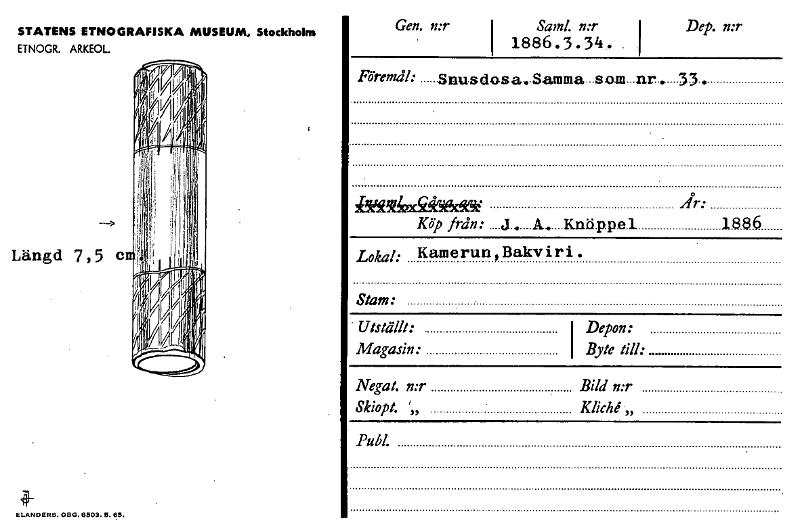 STATENS ETNOGRAFISKA MUSEUM, Stockholm
ETNOGR. ARKEOL.
Längd 7,5 cm.
ELANDERS. GBG. 6503. B. 65.
Gen. n:r
Saml. n:r
Dep. n:r
1886.3.34.
Föremål: Snusdosa.Samma som nr. 33.
Insaml. Gåva av: År:
Köp från: J. A. Knöppel 1886
Lokal: Kamerun,Bakviri.
Stam:
Utställt: Depon:
Magasin: Byte till:
Negat. n:r Bild n:r
Skiopt. „ Kliché „
Publ.